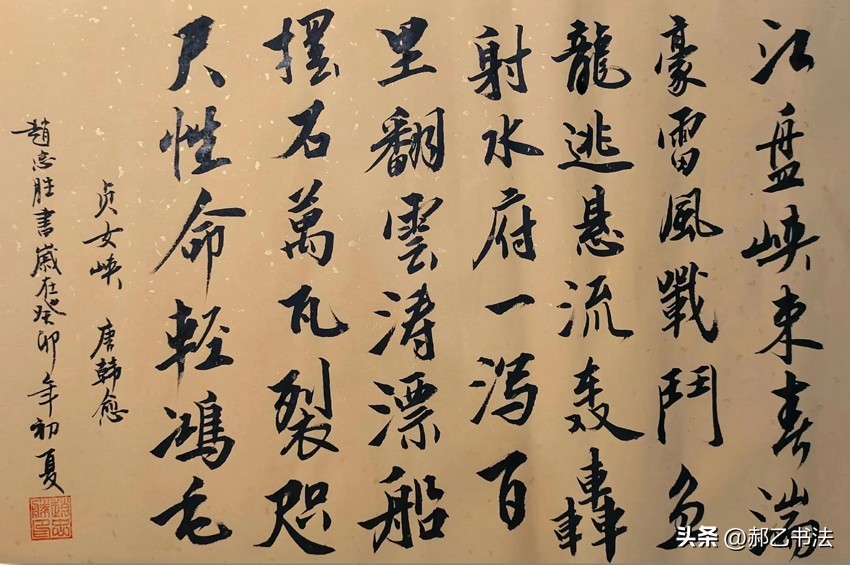 江盤峽束春湍
豪雷風戰鬥魚
龍逃悬流轰轟
射水府一泻百
里翻雲涛漂船
摆石萬瓦裂咫
尺性命輕鴻毛
贞女峡 唐韩愈
趙志胜書歲在癸卯年初夏
头条 @郝乙书法